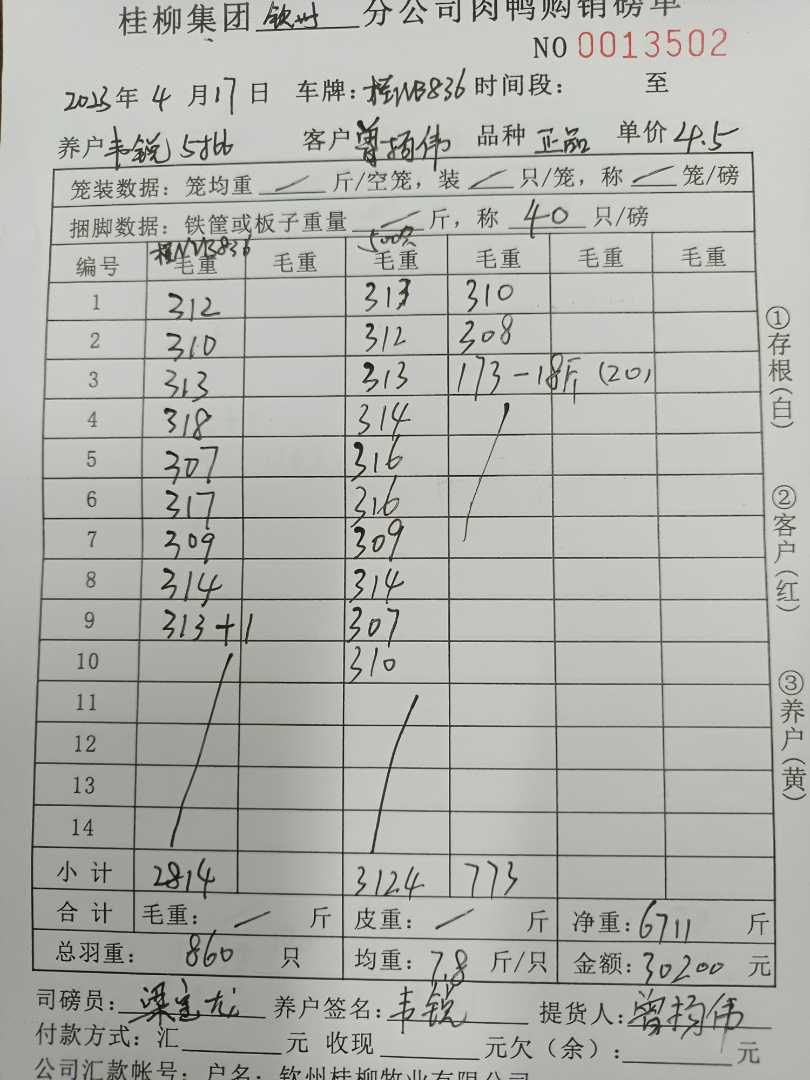 桂柳集团 钦州 分公司肉鸭购销磅单
NO 0013502
2023年 4 月 17 日 车牌: 桂NB836 时间段: 至
养户 韦锐 客户 曾扬伟 品种 正品 单价 4.5
笼装数据: 笼均重 / 斤/空笼, 装 / 只/笼, 称 / 笼/磅
捆脚数据: 铁筐或板子重量 / 斤, 称 40 只/磅
桂NVB836 500只
编号 毛重 毛重 毛重 毛重 毛重 毛重
1 312 313 310
2 310 312 308
3 313 313 173-18斤 (20)
4 318 314
5 307 316
6 317 316
7 309 309
8 314 314
9 313+1 307
10 310
11
12
13
14
小计 2814 3124 773
合计 毛重: / 斤 皮重: / 斤 净重: 6711 斤
总羽重: 860 只 均重: 7.8 斤/只 金额: 30200 元
司磅员: 梁 龙 养户签名: 韦锐 提货人: 曾扬伟
付款方式: 汇 元 收现 元欠(余): 元
公司汇款帐号: 户名: 钦州桂柳牧业有限公司
①存根(白)
②客户(红)
③养户(黄)